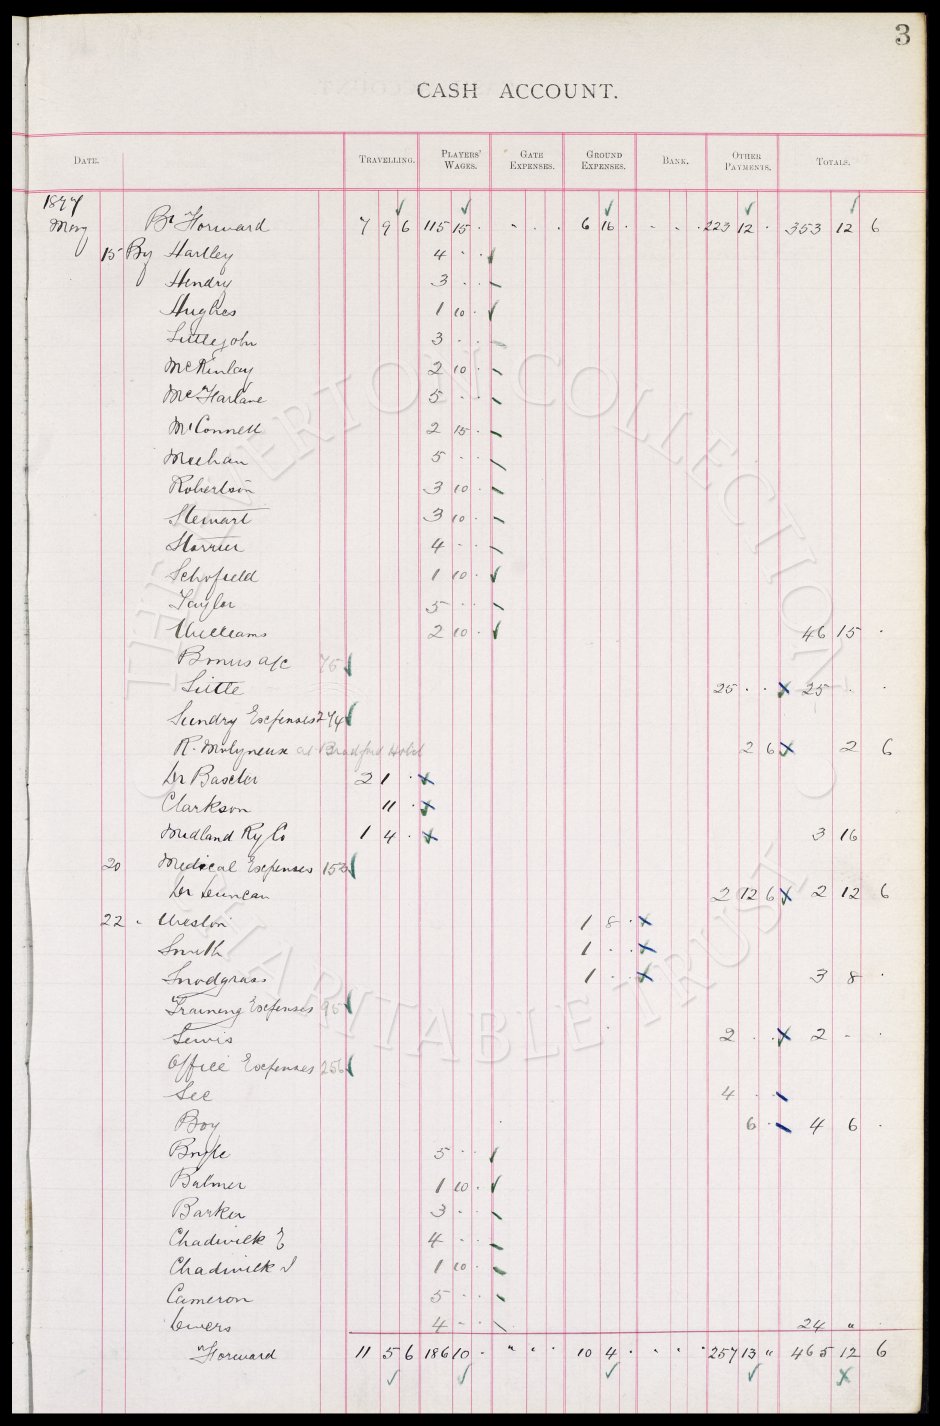 3
CASH ACCOUNT.
DATE. TRAVELLING. PLAYERS' WAGES. GATE EXPENSES. GROUND EXPENSES. BANK. OTHER PAYMENTS. TOTALS.
1897
May Bt Forward 7 9 6 115 15 · " · · 6 16 · - - · · 223 12 · 353 12 6
15 By Hartley 4 · · ✓
Hendry 3 · ·
Hughes 1 10 · ✓
Littlejohn 3 · ·
McKinlay 2 10 ·
McFarlane 5 · ·
McConnell 2 15 ·
Meehan 5 · ·
Robertson 3 10 ·
Stewart 3 10 ·
Storrier 4 · ·
Schofield 1 10 · ✓
Taylor 5 · ·
Williams 2 10 · ✓ 46 15 ·
Bonus a/c 75 ✓
Little 25 · · 25 · ·
Sundry Expenses 274 ✓
R. Molyneux at Bradford Hotel 2 6 2 6
Dr Baxter 2 1 ·
Clarkson 11 ·
Midland Ry Co 1 4 · 3 16
20 Medical Expenses 153 ✓
Dr Duncan 2 12 6 2 12 6
22 " Weston 1 8 ·
Smith 1 · ·
Snodgrass 1 · · 3 8 ·
Training Expenses 95 ✓
Lewis 2 · · 2 - ·
Office Expenses 256 ✓
See 4 · ·
Boy 6 · 4 6 ·
Boyle 5 · · ✓
Balmer 1 10 · ✓
Barker 3 · ·
Chadwick E 4 · ·
Chadwick J 1 10 ·
Cameron 5 · ·
Dewers 4 · · 24 " ·
Forward 11 5 6 186 10 · " · · 10 4 · · · · 257 13 " 465 12 6
THE EVERTON COLLECTION
CHARITABLE TRUST